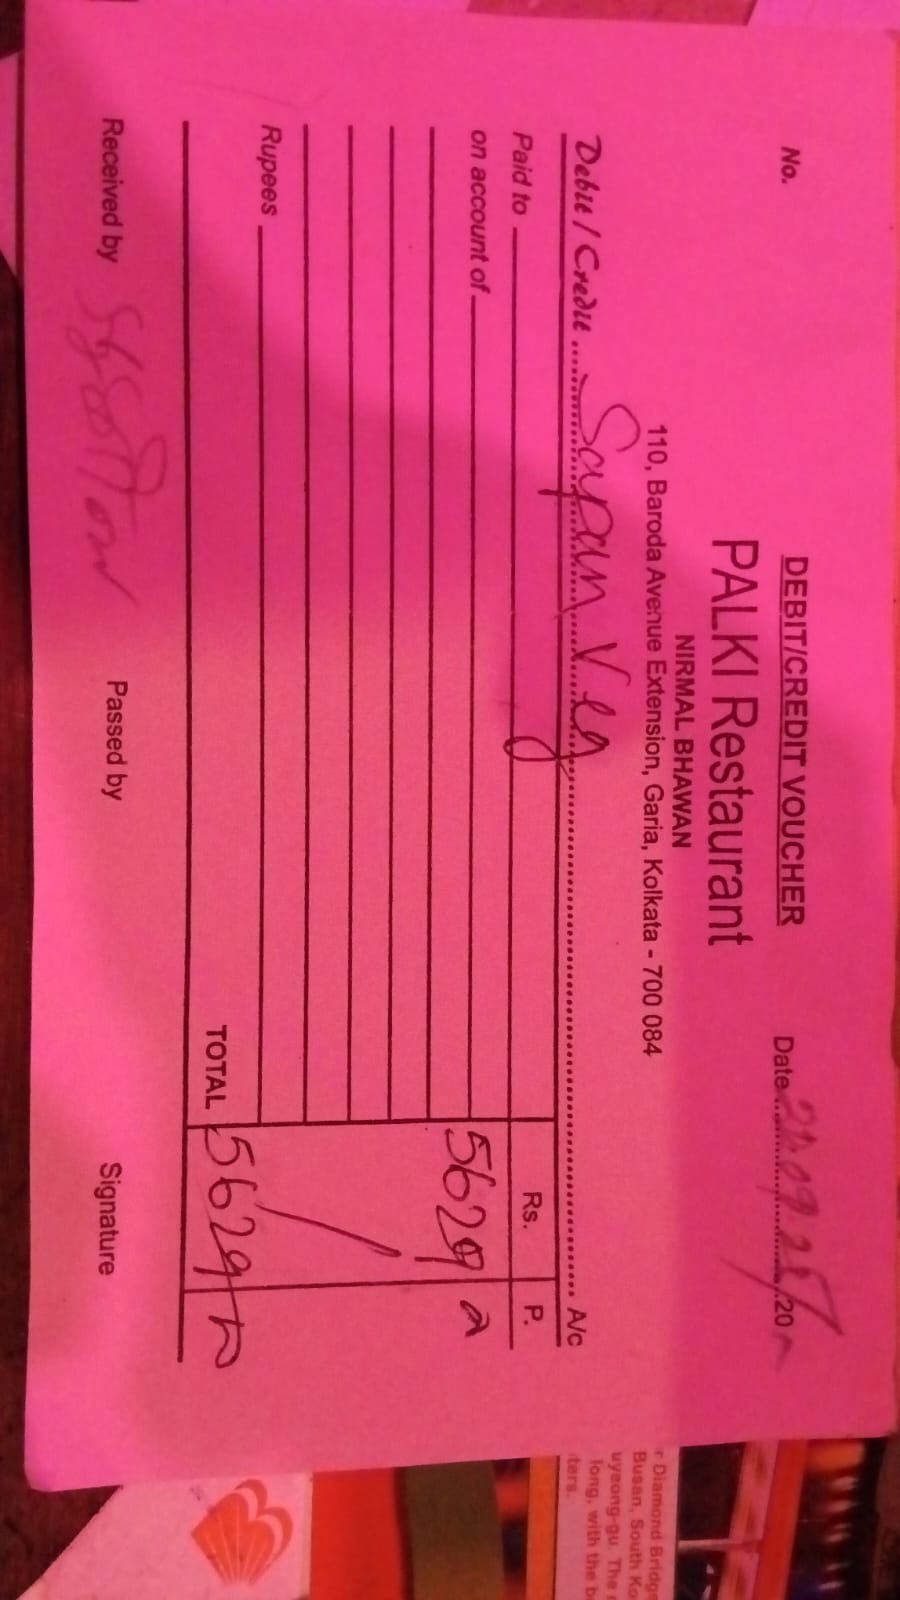 DEBIT/CREDIT VOUCHER
No.
Date 20
PALKI Restaurant
NIRMAL BHAWAN
110, Baroda Avenue Extension, Garia, Kolkata - 700 084
Debit / Credit Sapan Veg A/c
Paid to Rs. P.
on account of 5629
Rupees
TOTAL 5629
Received by Passed by Signature
r Diamond Bridge
Busan, South Ko
uyeong-gu. The
long, with the b
ters.